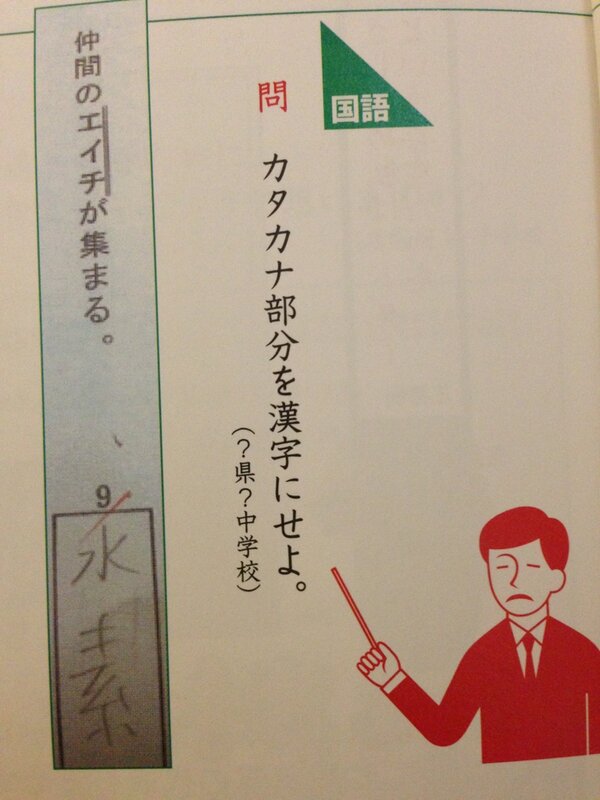 国語
問
カタカナ部分を漢字にせよ。
(?県?中学校)
仲間のエイチが集まる。
9
水素